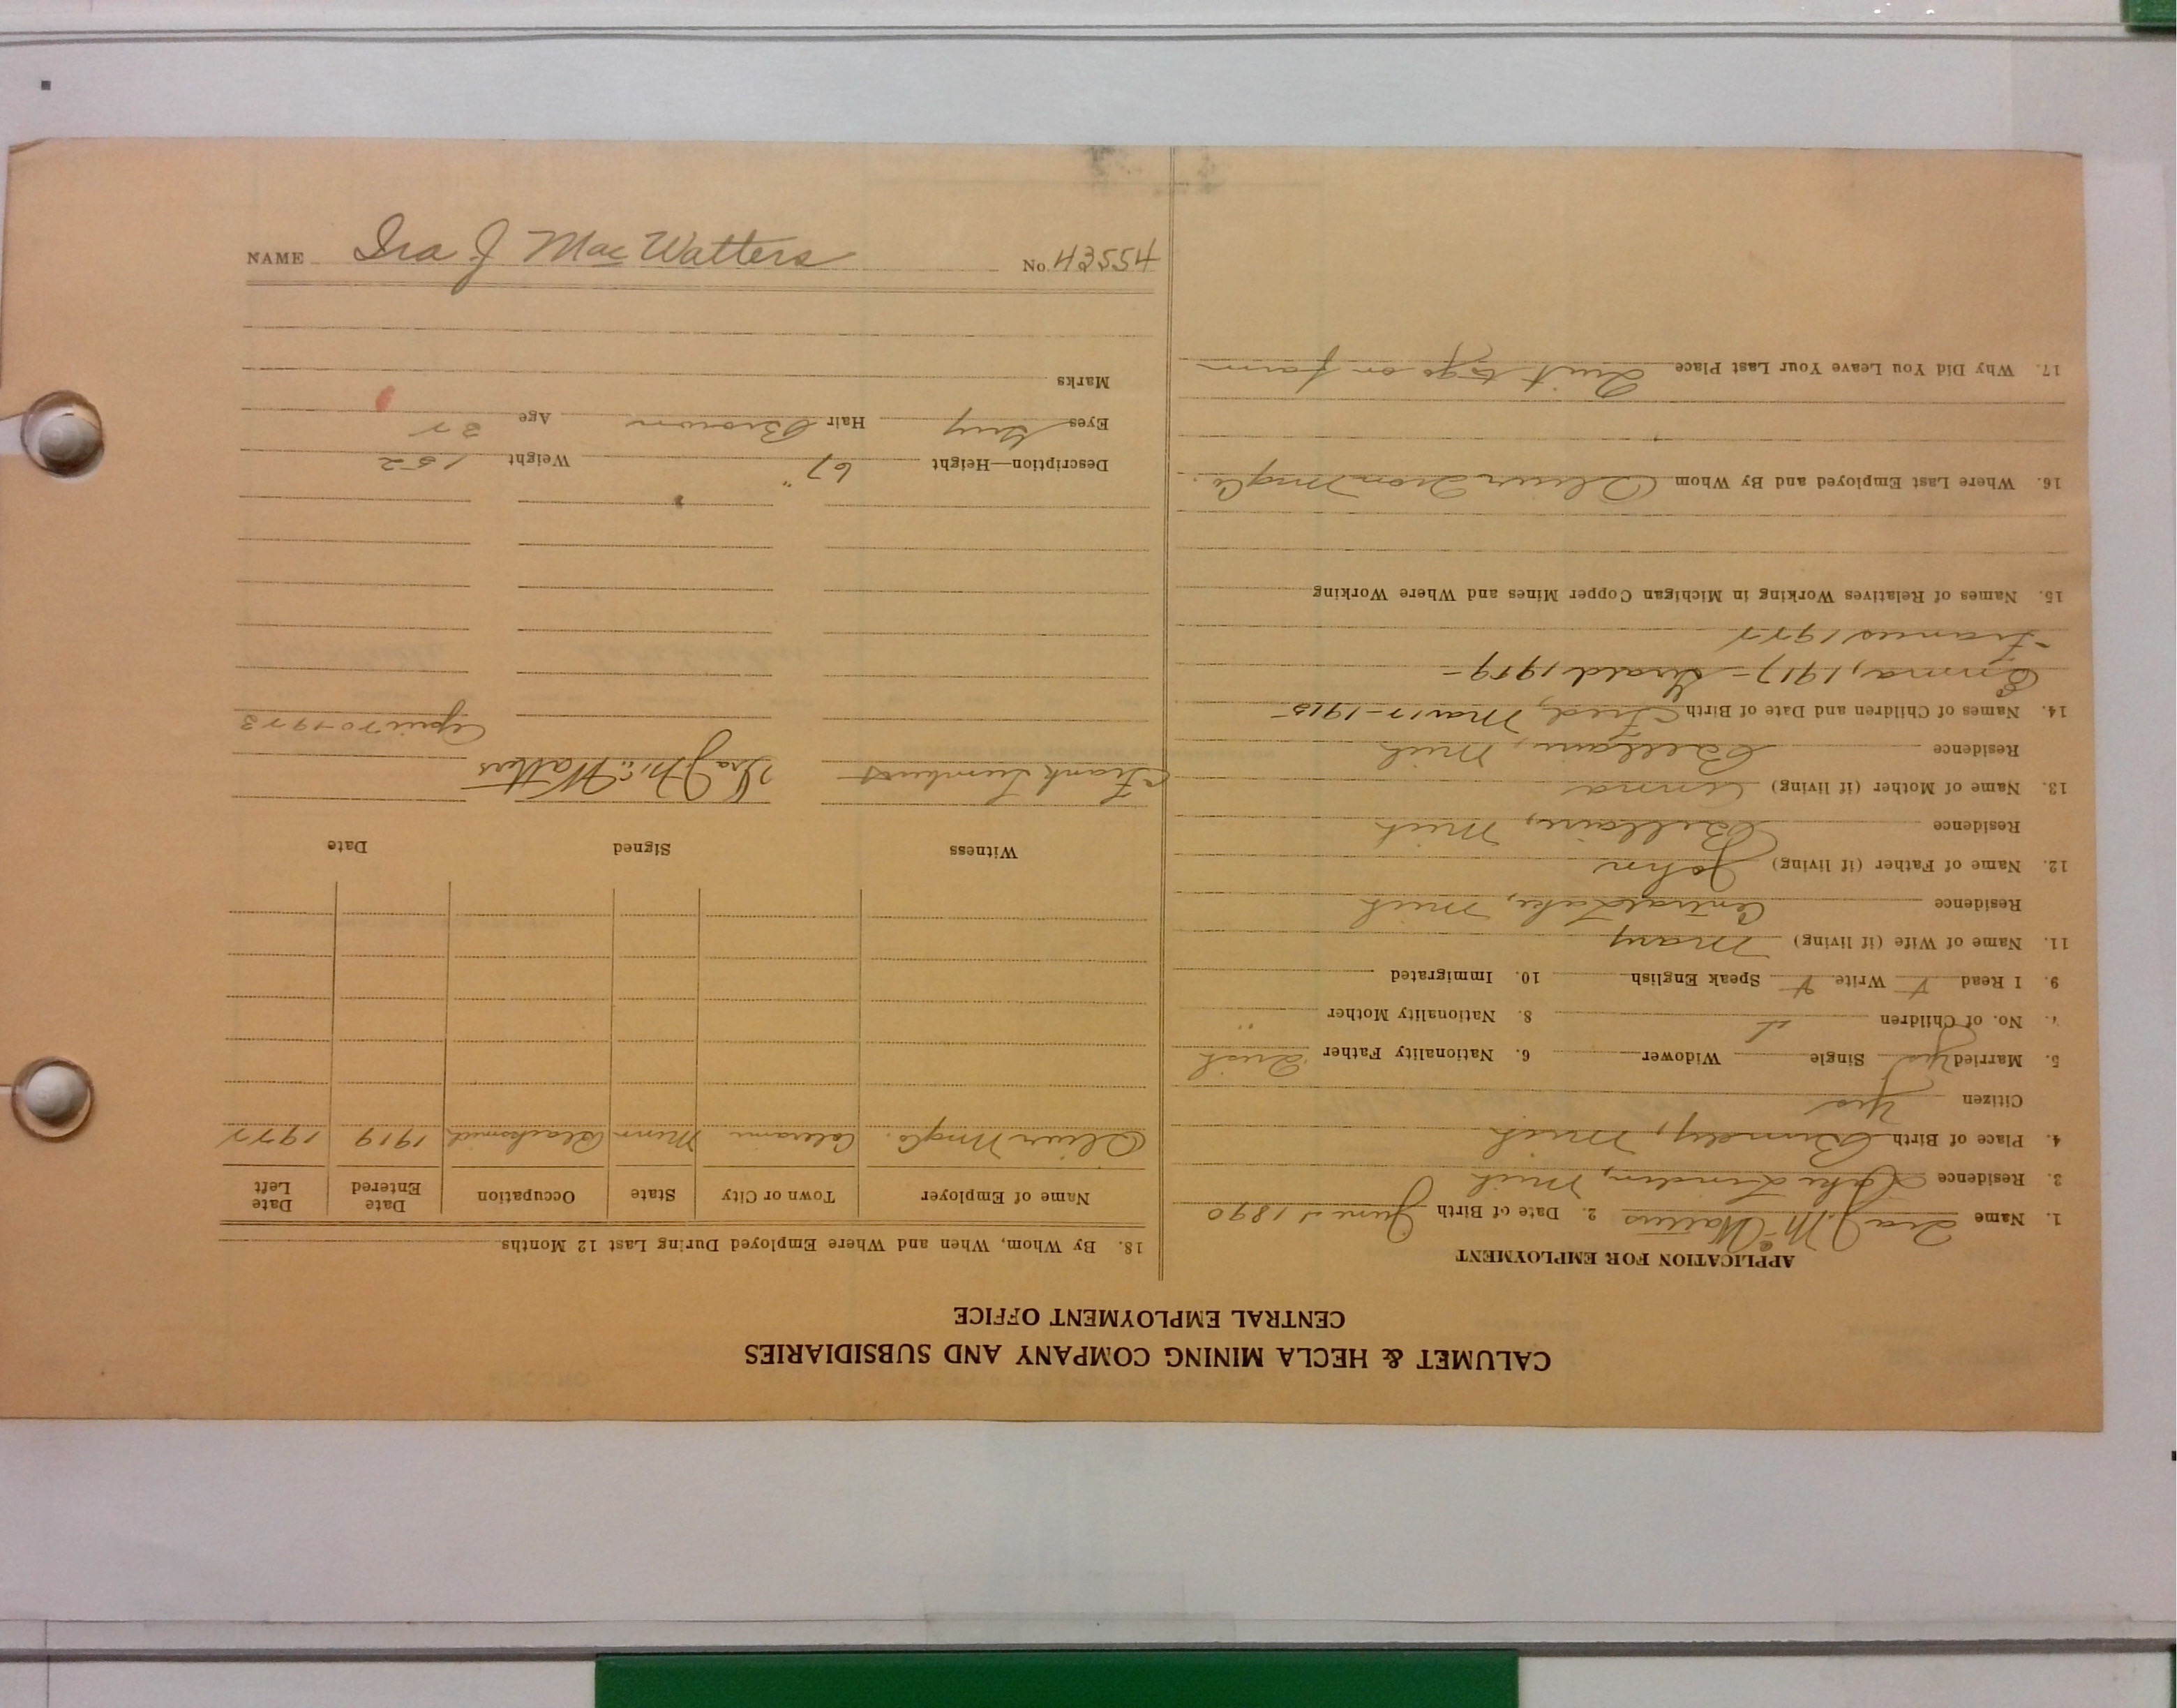 NAME Ira J MacWatters No. 43554
CALUMET & HECLA MINING COMPANY AND SUBSIDIARIES
CENTRAL EMPLOYMENT OFFICE
APPLICATION FOR EMPLOYMENT
1. Name Ira J. McWatters 2. Date of Birth June 1890
3. Residence Lake Linden, Mich
4. Place of Birth Mich
Citizen Yes
5. Married Yes Single Widower 6. Nationality Father Irish
7. No. of Children 8. Nationality Mother "
9. I Read Write Speak English 10. Immigrated
11. Name of Wife (if living) Mary
Residence Central Lake, Mich
12. Name of Father (if living) John
Residence Bellaire, Mich
13. Name of Mother (if living) Anna
Residence Bellaire, Mich
14. Names of Children and Date of Birth Fred, Mar 1915
Emma, 1917 - Gerald 1919 -
Francis 1922
15. Names of Relatives Working in Michigan Copper Mines and Where Working
16. Where Last Employed and By Whom Oliver Iron Mng Co.
17. Why Did You Leave Your Last Place Quit to go on farm
18. By Whom, When and Where Employed During Last 12 Months
Name of Employer Town or City State Occupation Date Entered Date Left
Oliver Mng Co. Coleraine Minn Blacksmith 1919 1922
Witness Signed Date
Frank Ira J McWatters April 20-1923
Description—Height 67" Weight 152
Eyes Grey Hair Brown Age 32
Marks